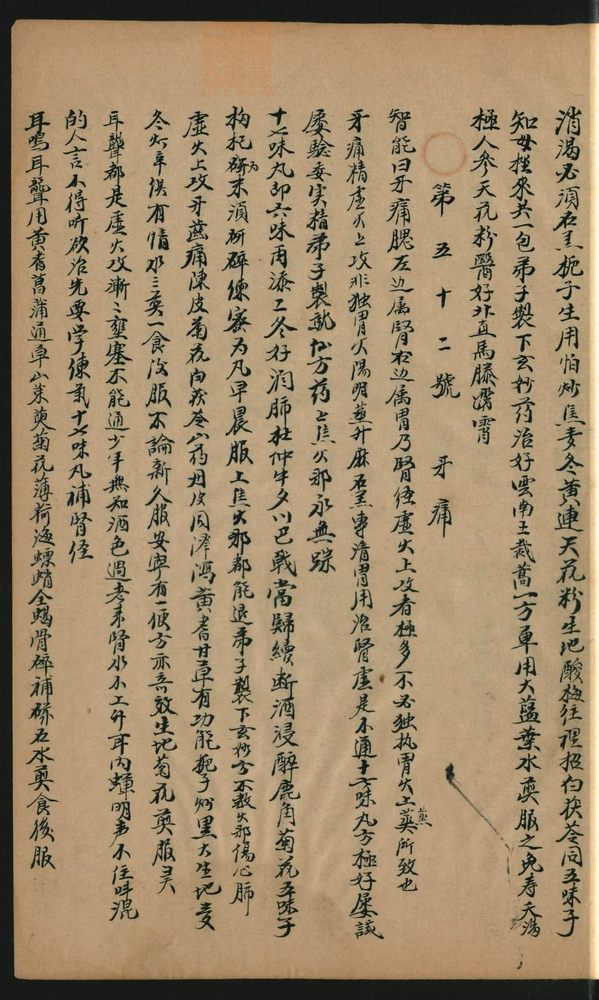 消渴必須石羔梔子生用怕炒焦麦冬黃連天花粉生地酸梅往裡招白茯苓同五味子
知母拴來共一包弟子製下玄妙药治好雲南王裁蒿一方單用大藍葉水煎服之免春夭
極人參天花粉醫好外直馬滕霄
第五十二號 牙痛
智能曰牙痛腮左边属腎右边属胃乃腎経虛火上攻者極多不必独执胃火上蒸所致也
牙痛精虛火上攻非独胃火陽明蒸升麻石羔專清胃用治腎虛是不通十七味丸方極好屡試
屡驗委实指弟子製就妙方药上焦火邪永無踪
十七味丸即六味再添二冬好润肺杜仲牛夕川巴戟當歸續断酒浸醉鹿角菊花五味子
枸杞研为末須研碎煉蜜为丸早晨服上焦火邪都能退弟子製下玄妙方不教火邪傷心肺
虛火上攻牙齒痛陳皮菊花白茯苓山药丹皮同澤瀉黃耆甘草有功能梔子炒黑大生地麦
冬灯草俱有情水三煎一食後服不論新久服安寧有一便方亦奇效生地菊花煎服灵
耳聾都是虛火攻漸々壅塞不能通少年無知酒色過老來腎水不上升耳内蟬鳴声不住叫混
的人言不得听欲治先要学煉氣十七味丸補腎経
耳鳴耳聾用黃耆菖蒲通草山茱萸菊花薄荷海螵蛸全蝎骨碎補硃石水煎食後服